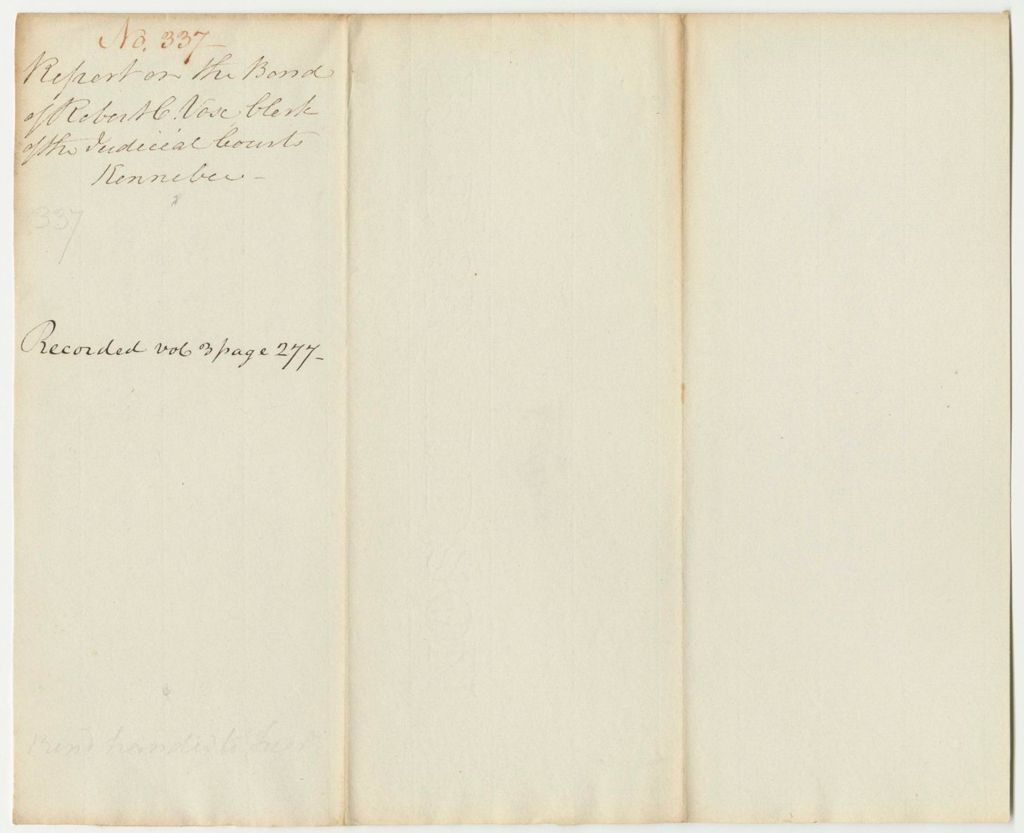 No. 337
Report on the Bond
of Robert C. Vose Clerk
of the Judicial Courts
Kennebec
337
Recorded vol 3 page 277
Bond handed to